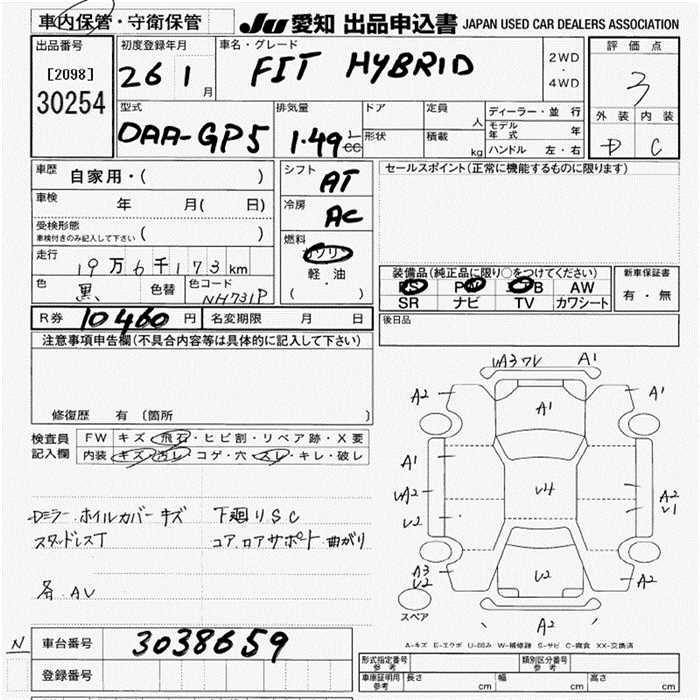 車内保管・守衛保管
JU 愛知 出品申込書 JAPAN USED CAR DEALERS ASSOCIATION
出品番号
[2098]
30254
初度登録年月
26 1 月
車名・グレード
FIT HYBRID
2WD
・
4WD
評価点
3
外装 内装
D C
型式
DAA-GP5
排気量
1.49 L
cc
ドア
形状
定員 人
積載 kg
ディーラー・並行
モデル年式 年
ハンドル 左・右
車歴
自家用・( )
車検 年 月( 日)
受検形態
車検付きのみ記入して下さい ( )
走行
19万6千173km
色 黒 色替 色コード NH731P
シフト
AT
冷房
AC
燃料
ガソリン
軽・油
( )
セールスポイント(正常に機能するものに限ります)
装備品(純正品に限り○をつけてください)
PS PW エアB AW
SR ナビ TV カワシート
新車保証書
有・無
R券 10460 円 名変期限 月 日
後日品
注意事項申告欄(不具合内容等は具体的に記入して下さい)
修復歴 有 (箇所 )
検査員
記入欄
FW キズ・飛石・ヒビ割・リペア跡・X要
内装 キズ・汚レ・コゲ・穴・スレ・キレ・破レ
Dミラー.ホイルカバー キズ 下廻りSC
スタッドレスT コア.ロアサポート曲がり
各AU
A1
A2
A1
A2
A1
A1
UA2
U2
U4
A2
U1
A3
U2
U2
A2
A2
スペア
A-キズ E-エクボ U-凹み W-補修跡 S-サビ C-腐食 XX-交換済
N 車台番号 3038659
登録番号
形式指定番号 参考 類別区分番号 参考
車庫証明用 参考 長さ cm 幅 cm 高さ cm